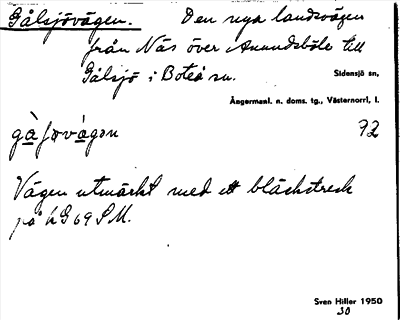 Gålsjövägen. Den nya landsvägen
från Näs över Anundsböle till
Gålsjö i Boteå sn.
Sidensjö sn,
Ångermanl. n. doms. tg., Västernorrl, l.
92
Vägen utmärkt med ett bläckstreck
på
Sven Hiller 1950
30